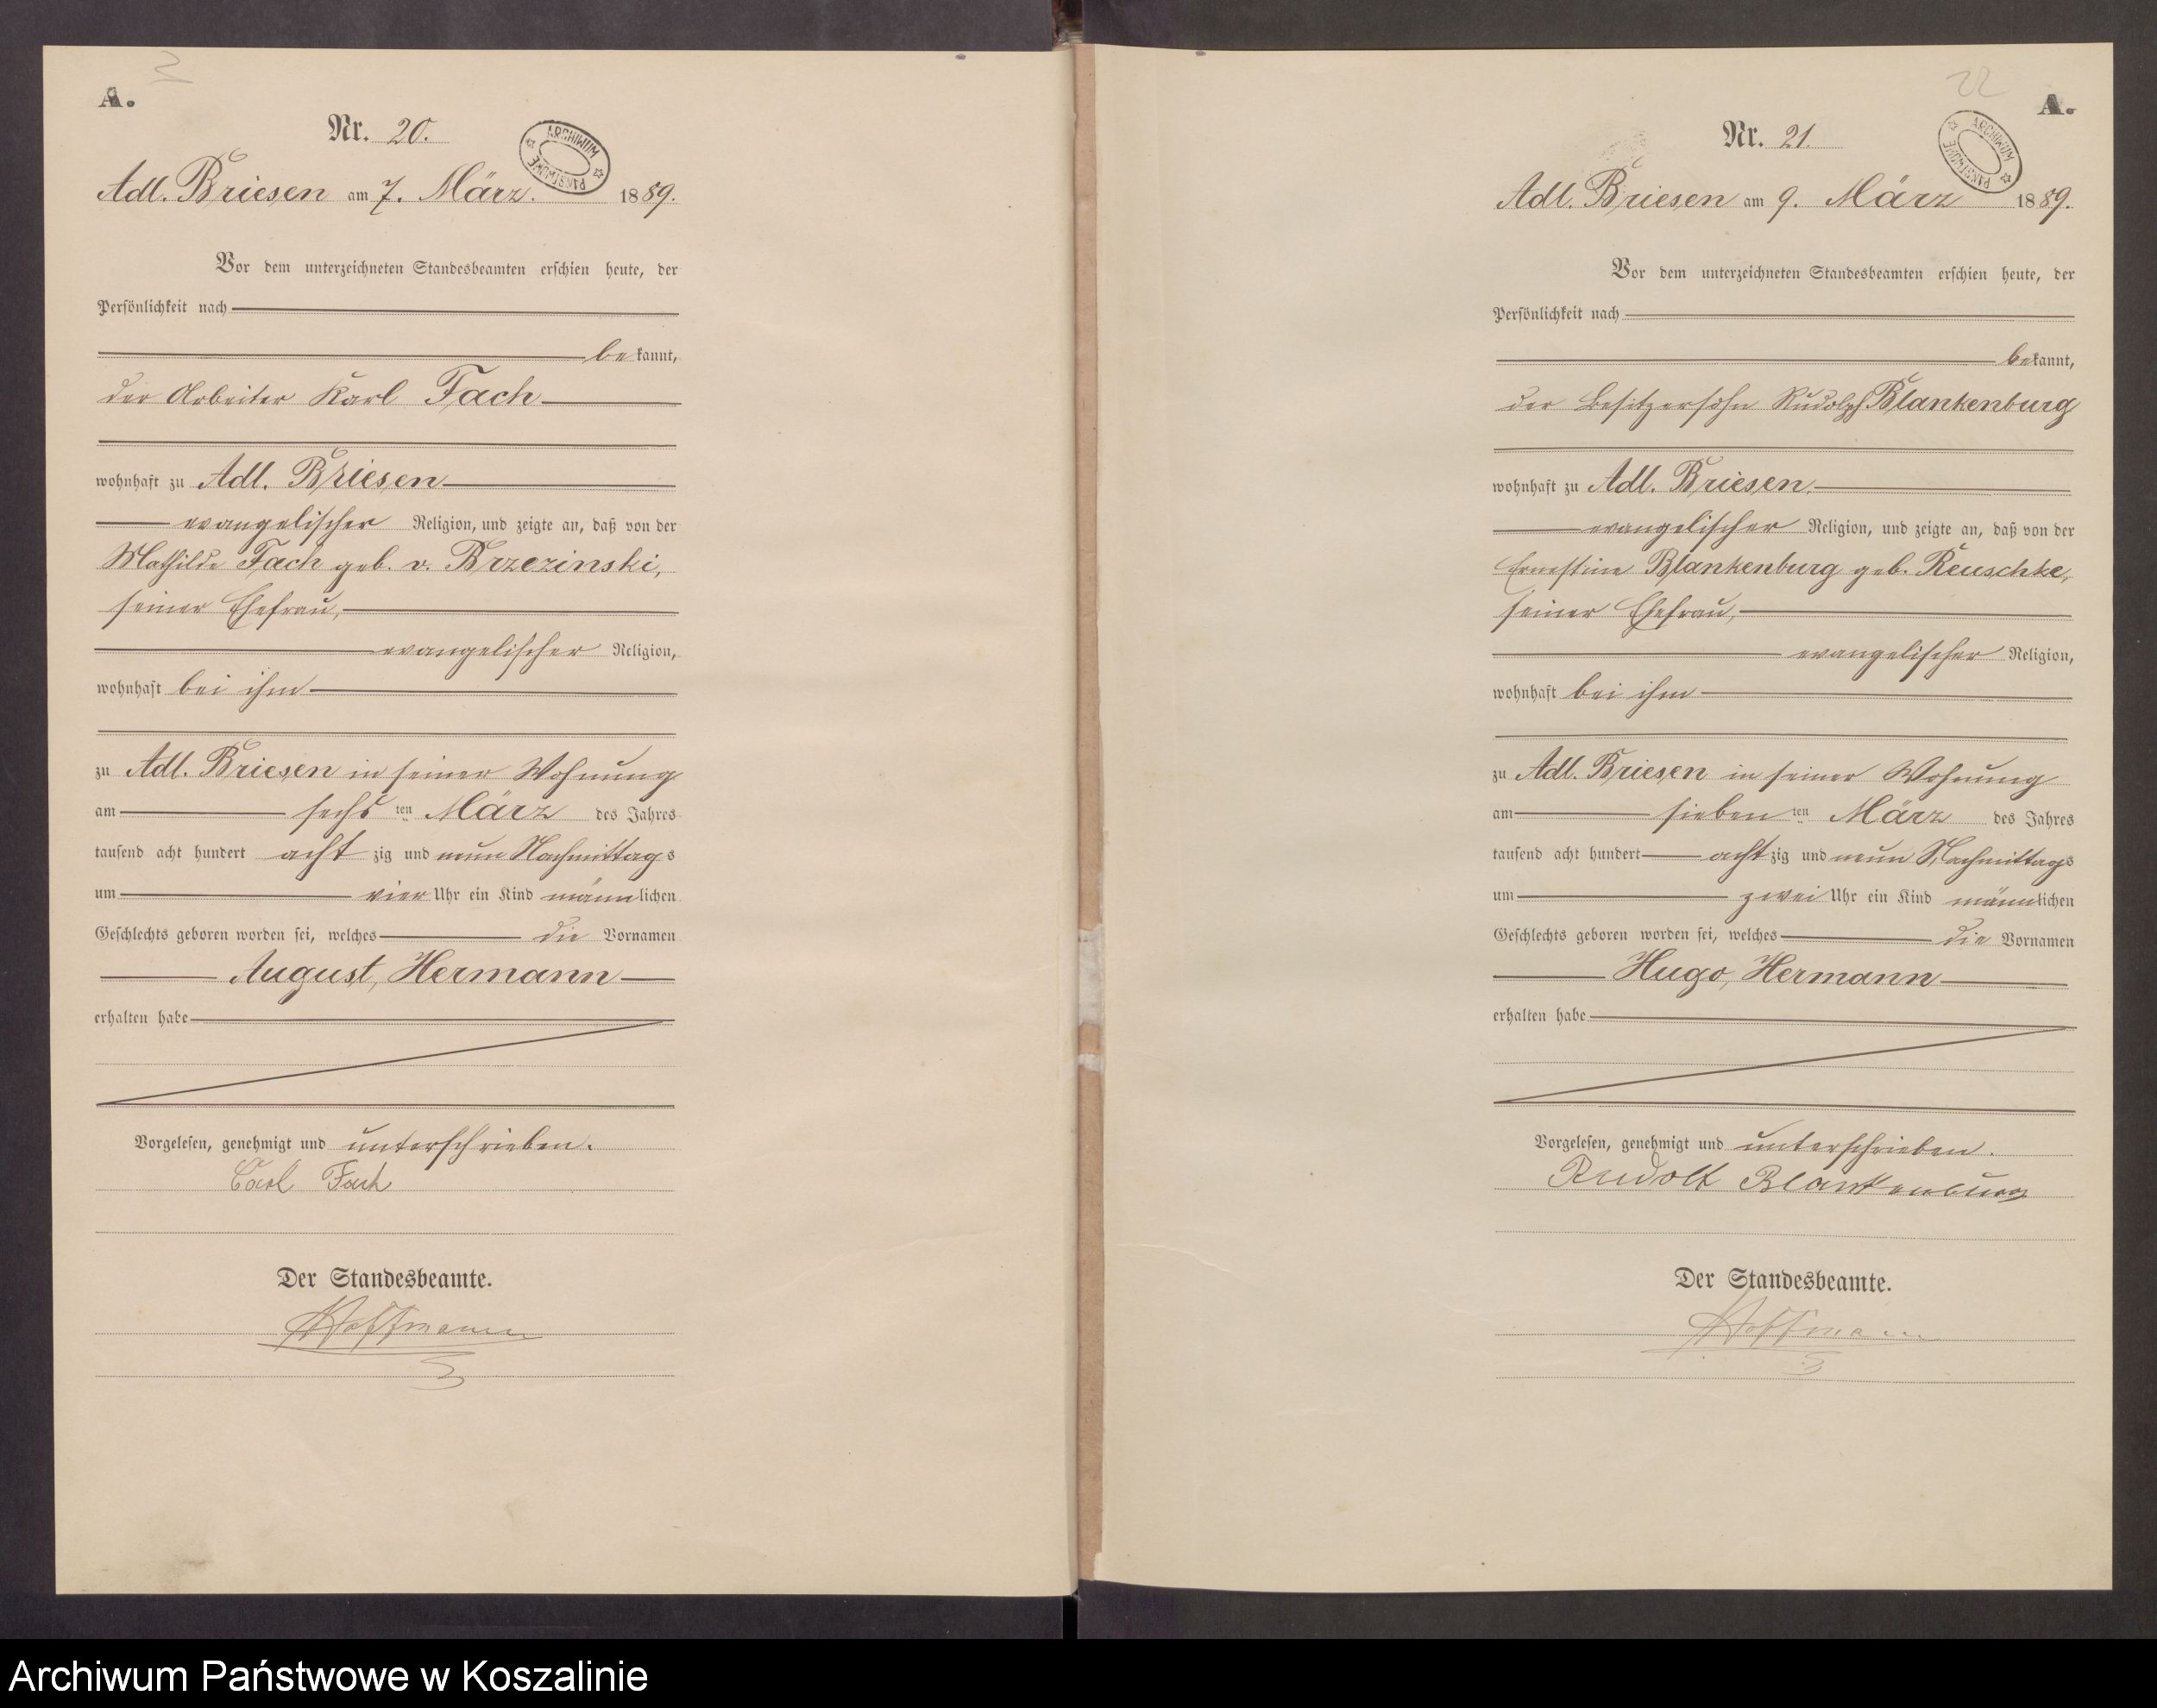 A.
Nr. 20.
ARCHIWUM PAŃSTWOWE
Adl. Briesen am 7. März. 1889.
Vor dem unterzeichneten Standesbeamten erschien heute, der
Persönlichkeit nach
bekannt,
der Arbeiter Karl Fach
wohnhaft zu Adl. Briesen
evangelischer Religion, und zeigte an, daß von der
Mathilde Fach geb. v. Brzezinski,
seiner Ehefrau,
evangelischer Religion,
wohnhaft bei ihm
zu Adl. Briesen in seiner Wohnung
am sechsten März des Jahres
tausend acht hundert achtzig und neun Nachmittags
um vier Uhr ein Kind männlichen
Geschlechts geboren worden sei, welches die Vornamen
August, Hermann
erhalten habe
Vorgelesen, genehmigt und unterschrieben.
Carl Fach
Der Standesbeamte.
Hoffmann
22
A.
Nr. 21.
ARCHIWUM PAŃSTWOWE
Adl. Briesen am 9. März 1889.
Vor dem unterzeichneten Standesbeamten erschien heute, der
Persönlichkeit nach
bekannt,
der Besitzersohn Rudolph Blankenburg
wohnhaft zu Adl. Briesen.
evangelischer Religion, und zeigte an, daß von der
Ernestine Blankenburg geb. Reuschke,
seiner Ehefrau,
evangelischer Religion,
wohnhaft bei ihm
zu Adl. Briesen in seiner Wohnung
am siebenten März des Jahres
tausend acht hundert achtzig und neun Nachmittags
um zwei Uhr ein Kind männlichen
Geschlechts geboren worden sei, welches die Vornamen
Hugo, Hermann
erhalten habe
Vorgelesen, genehmigt und unterschrieben.
Rudolf Blankenburg
Der Standesbeamte.
Hoffmann
Archiwum Państwowe w Koszalinie